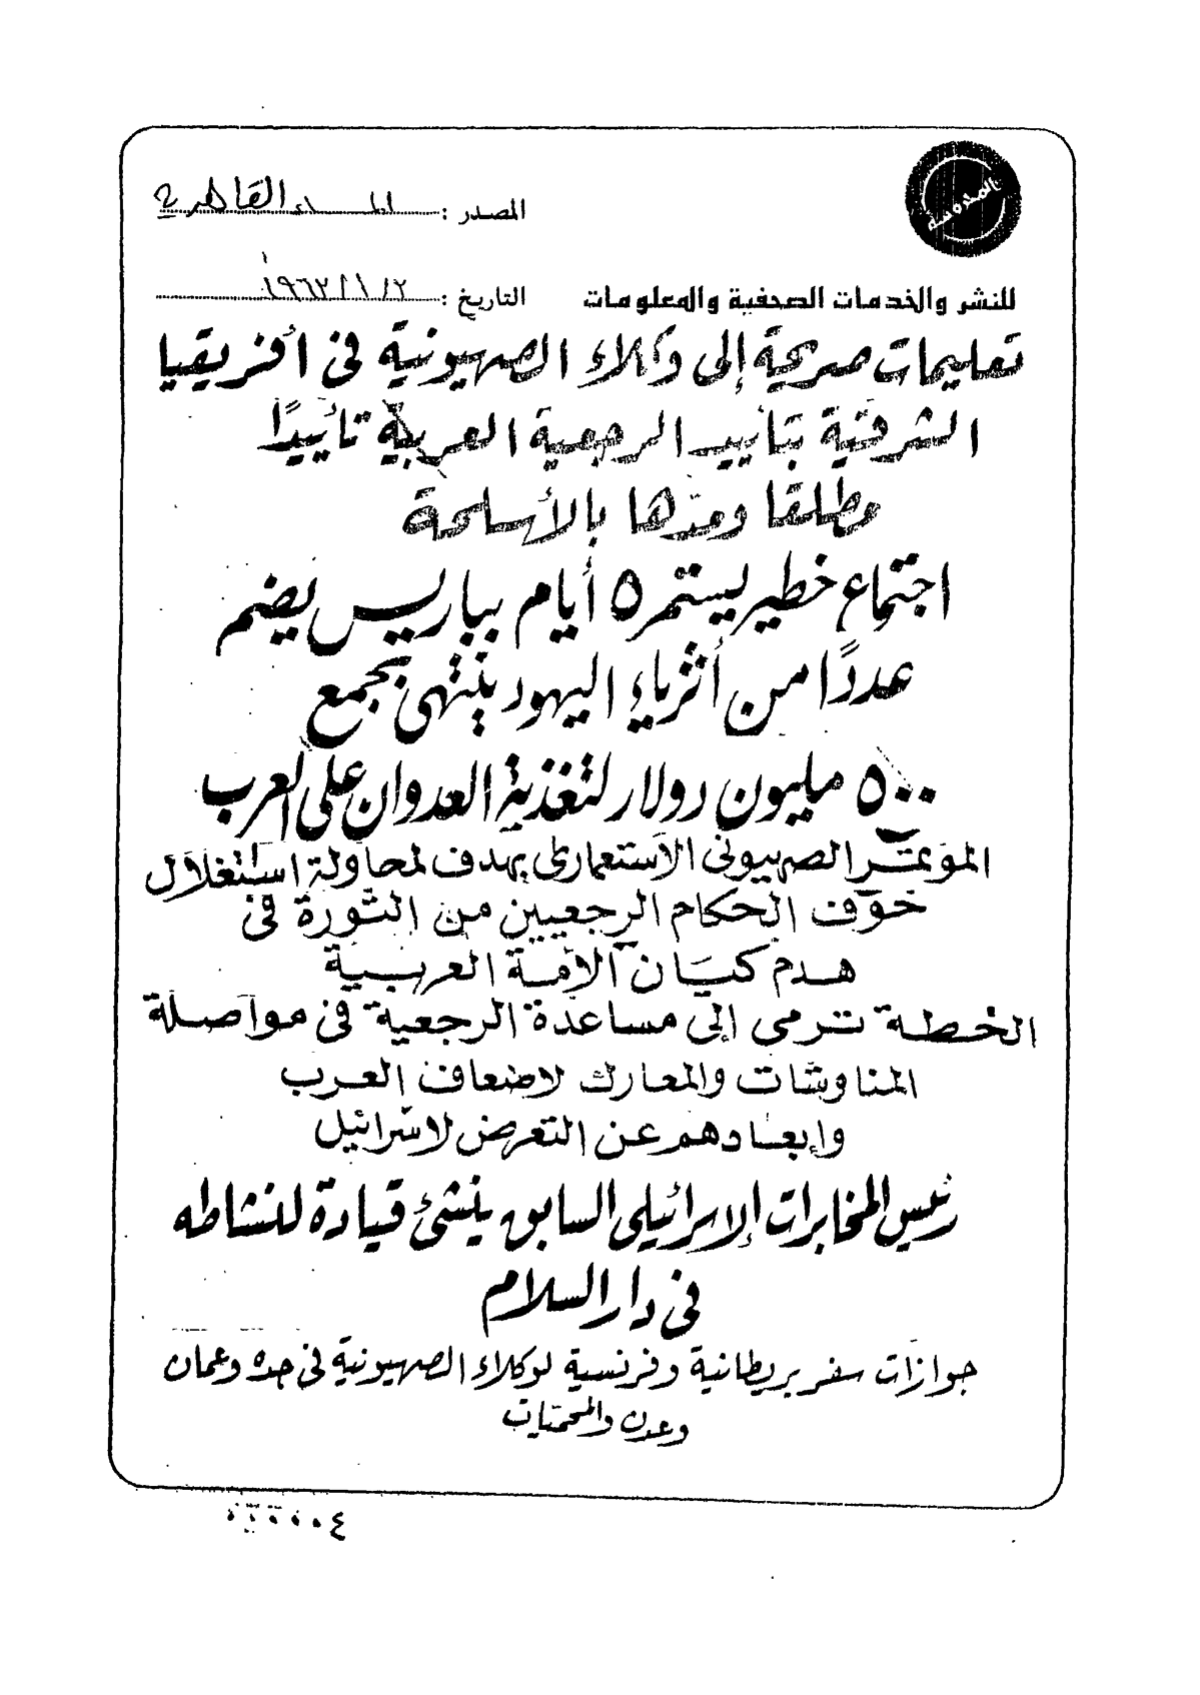 المصدر : المساء القاهرية
للنشر والخدمات الصحفية والمعلومات التاريخ : ١٩٦٣/١/٢
تعليمات صريحة إلى وكلاء الصهيونية فى أفريقيا
الشرقية بتأييد الرجعية العربية تأييدًا
مطلقا ومدها بالأسلحة
اجتماع خطير يستمر ٥ أيام بباريس يضم
عددًا من أثرياء اليهود ينتهى بجمع
٥٠٠ مليون دولار لتغذية العدوان على العرب
المؤتمر الصهيونى الاستعمارى يهدف لمحاولة استغلال
خوف الحكام الرجعيين من الثورة فى
هدم كيان الأمة العربية
الخطة ترمى إلى مساعدة الرجعية فى مواصلة
المناوشات والمعارك لاضعاف العرب
وإبعادهم عن التعرض لاسرائيل
رئيس المخابرات الإسرائيلى السابق ينشئ قيادة لنشاطه
فى دار السلام
جوازات سفر بريطانية وفرنسية لوكلاء الصهيونية فى جده وعمان
وعدن والمحميات